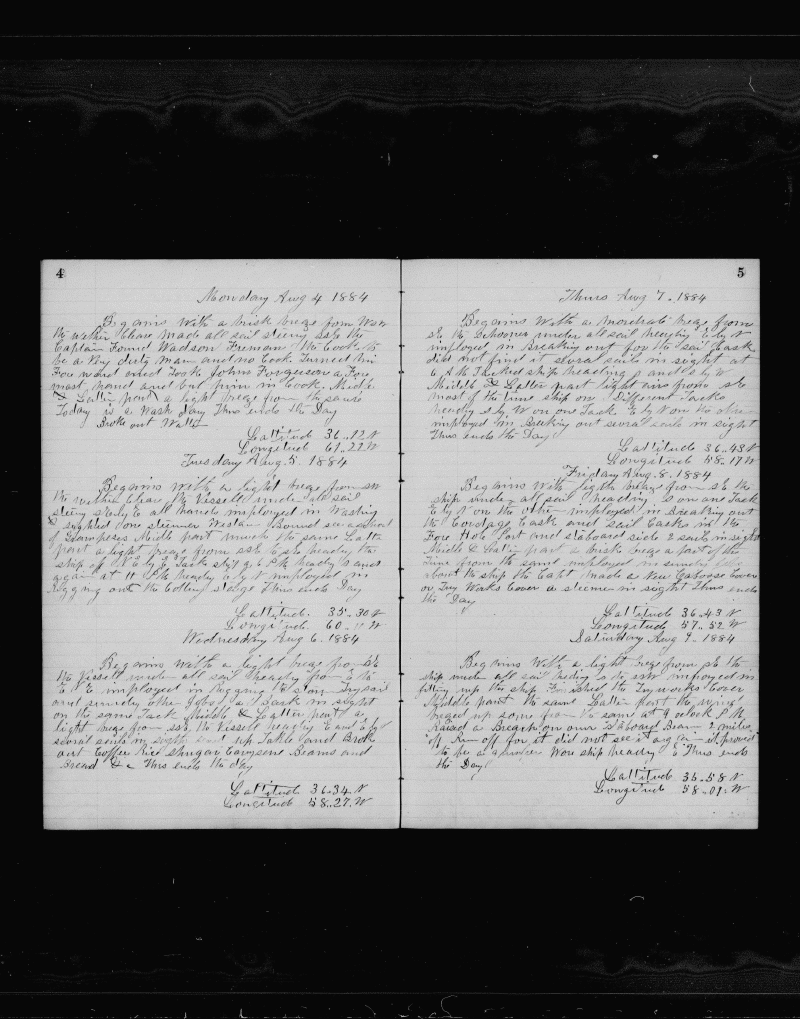 4
Monday Aug 4 1884
Begains With a brisk breze from West
the wether Cleare Made all sail stering SSE the
Captain Found Wadson Freman the Cook to
be a Very dirty Man and no Cook Turned him
Foreward and Took Johns Forguson a Fore
mast hand and put him in Cook. Midle
& Latter part a light breze from the same
Today is a Wash day Thus ends the Day
Broke out Watter
Lattitud 36..12 N
Longitud 61..21 W
Tuesday Aug. 5. 1884
Begains With a light breze from SW
the wether Cleare the Vessell under all sail
stering all hands imployed in Washing
& sighted one steemer Westan Bound saw a shoal
of Grampeses Midle part much the same Latter
part a light breze from SSE headg the
ship off Tack at 9 P.M. headg and
again at 11 P.M. headg E by N imployed in
Rigging out the Cutting stage Thus ends Day
Lattitude. 35..30 N
Longitude. 60..11 W
Wednesday Aug 6. 1884
Begains With a light breze from
the Vessell under all sail headg from E to
imployed in Rigging the storm Trysail
and sundry other Jobs a Bark in sight
on the same Tack Middle & Latter part a
light breze from SSE the Vessell headg E and E by
several sails in sight up Takle and Broke
out Coffee Rice Shugar Cargsene Beams and
Bread &c Thus ends the day
Lattitud 36..34. N
Longitud 58..27. W
5
Thurs Aug 7. 1884
Begains With a Mordrate breze from
the Schooner under all sail heading E by N
imployed in Breaking out for the Sail Cask
did not find it several sails in sight at
6 A.M. Tacked ship heading S and S by W
Middle & Latter part light airs from SE
most of the time ship on Different Tacks
headg S by W on one Tack E by N on the other
imployed in Breaking out several sails in sight
Thus ends the Day
Lattitude 36..43 N
Longitud 58..17 W
Friday Aug. 8. 1884
Begains With ligth breze from SE the
ship under all sail heading S on one Tack
E by N on the other imployed in Breaking out
the Cordage Cask and sail Casks in the
Fore Hole Port and staboard side 2 sails in sight
Middle & Latter part a brisk breze a part of the
time from the same imployed in sundry Jobs
about the ship the Capt made a New Caboose Cover
or Try Works Cover a steemer in sight Thus ends
the Day
Lattitud 36..43 N
Longitud 57..52 W
Saturday Aug 9. 1884
Begains With a light breze from SE the
ship under all sail heding S to SSW imployed in
fitting up the ship Finished the Tryworks Cover
Middle part the same Latter part the wind
brezed up some from the same at 4 oclock P.M.
Raised a Breach on our staboard Beam 2 miles
off Run off for it did not see it again it proved
to be a Wore ship headg E Thus ends
the Day
Lattitud 36..58 N
Longitud 58..01. W